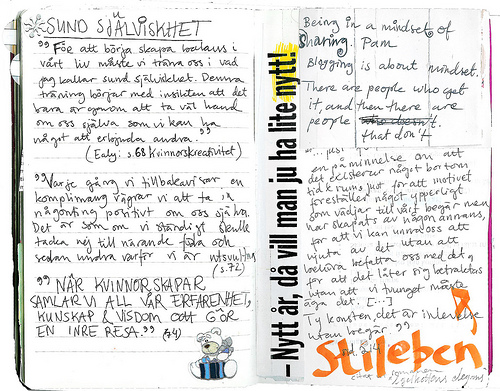 SUND SJÄLVISKHET
"För att börja skapa balans i
vårt liv måste vi träna oss i vad
jag kallar sund självishet. Denna
träning börjar med insikten att det
bara är genom att ta väl hand
om oss själva som vi kan ha
något att erbjuda andra."
(Ealy: s.68 Kvinnorskreativitet)
"Varje gång vi tillbakavisar en
komplimang vägrar vi att ta in
någonting positivt om oss själva.
Det är som om vi ständigt skulle
tacka nej till närande föda och
sedan undra varför vi är utsvultna"
(s.72)
"NÄR KVINNOR SKAPAR
SAMLAR VI ALL VÅR ERFARENHET,
KUNSKAP & VISDOM OCH GÖR
EN INRE RESA." (74)
– Nytt år, då vill man ju ha lite nytt!
Being in a mindset of
Sharing. Pam
Blogging is about mindset.
There are people who get
it, and then there are
people who doesn't
that don't
... just
en påminnelse om att
det existerar något bortom
tid & rum, just för att motivet
föreställer något ypperligt
som vädjar till vårt begär men
har skapats av någon annans,
för att vi kan unna oss att
njuta av det utan att
behöva befatta oss med det,
för att det låter sig betraktas
utan att vi tvunget måste
äga det. [...]
Ty konsten, det är inlevelse
utan begär."
Stilebcn
igelkottens elegans